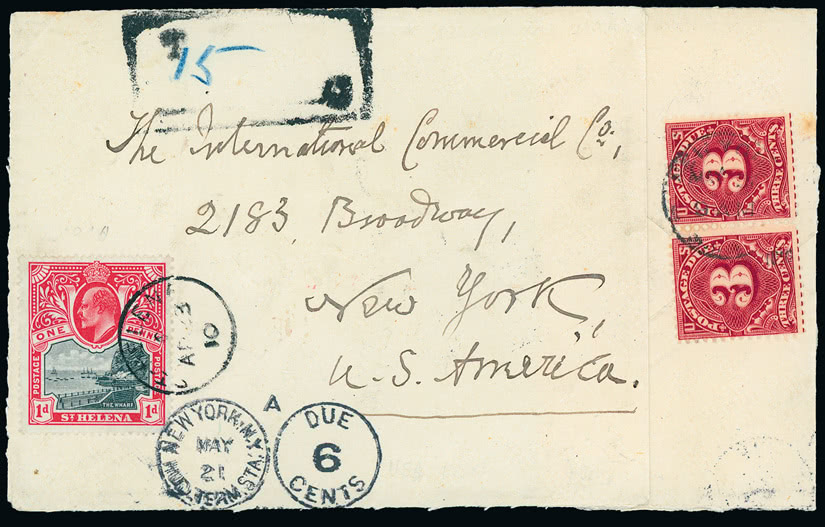 T
15
The International Commercial Co.,
2183, Broadway,
New York,
U.S. America.
POSTAGE DUE
3
THREE CENTS
POSTAGE DUE
3
THREE CENTS
ONE PENNY
POSTAGE POSTAGE
THE WHARF
1d ST HELENA 1d
AP 23
10
NEW YORK, N.Y.
MAY
21
TERM. STA.
A
DUE
6
CENTS